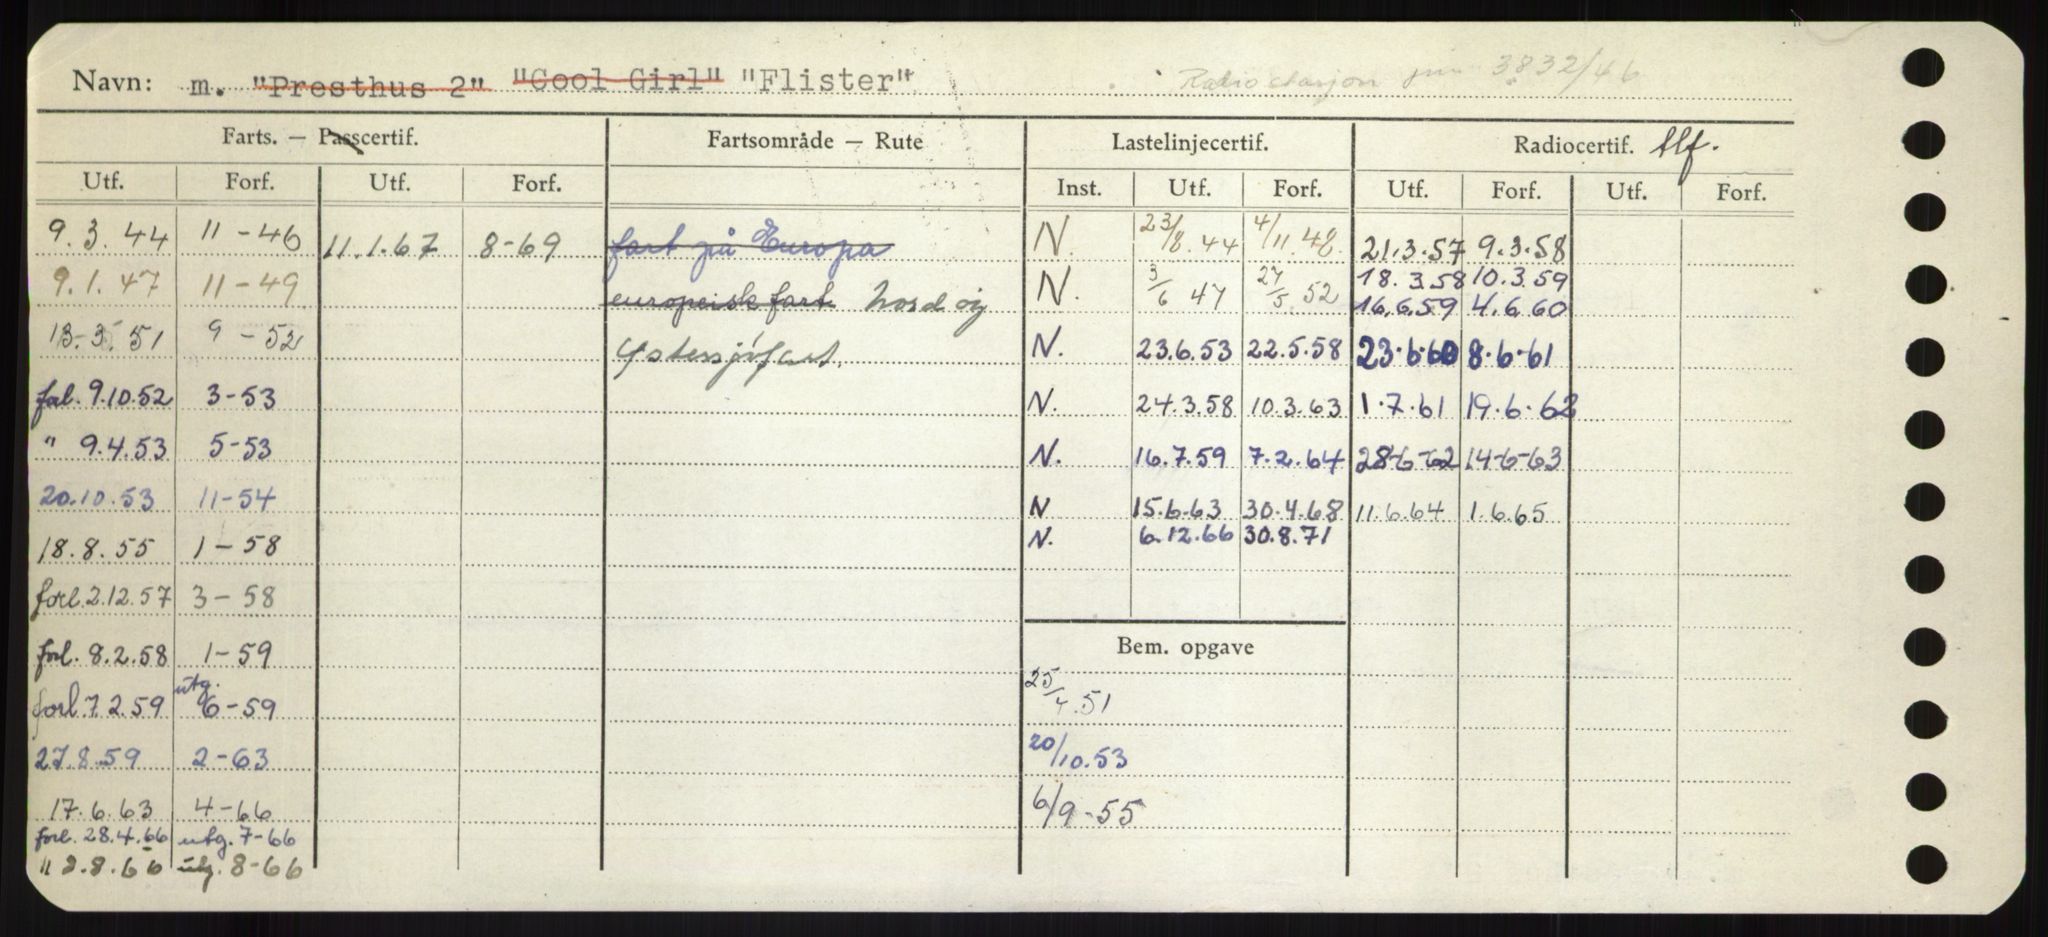 Navn: m. "Presthus 2" "Cool Girl" "Flister" Radiostasjon 3832/46
Farts. — Passcertif. Fartsområde — Rute Lastelinjecertif. Radiocertif. tlf.
Utf. Forf. Utf. Forf. Inst. Utf. Forf. Utf. Forf. Utf. Forf.
9.3.44 11-46 11.1.67 8-69 fart på Europa N. 23/8.44 4/11.48 21.3.57 9.3.58
9.1.47 11-49 europeisk fart Nord og N. 3/6 47 27/5 52 18.3.58 10.3.59
16.6.59 4.6.60
13.3.51 9-52 Østersjøfart. N. 23.6.53 22.5.58 23.6.60 8.6.61
fal. 9.10.52 3-53 N. 24.3.58 10.3.63 1.7.61 19.6.62
" 9.4.53 5-53 N. 16.7.59 7.2.64 28-6-62 14-6-63
20.10.53 11-54 N 15.6.63 30.4.68 11.6.64 1.6.65
18.8.55 1-58 N. 6.12.66 30.8.71
forl. 2.12.57 3-58
forl. 8.2.58 1-59 Bem. opgave
forl. 7.2.59 utg. 6-59 25/4.51
27.8.59 2-63 20/10.53
17.6.63 4-66 6/9-55
forl. 28.4.66 utg. 7-66
" 2.8.66 utg. 8-66